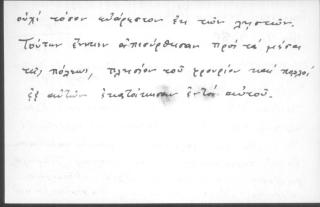 οὐχί τόσον εὐάρεστον ἐκ τῶν ληστῶν.
Τούτων ἕνεκεν ἀπεσύρθησαν πρός τά μέσα
τῆς πόλεως, πλησίον τοῦ φρουρίου καί πολλοί
ἐξ αὐτῶν ἐκατοίκησαν ἐντός αὐτοῦ.